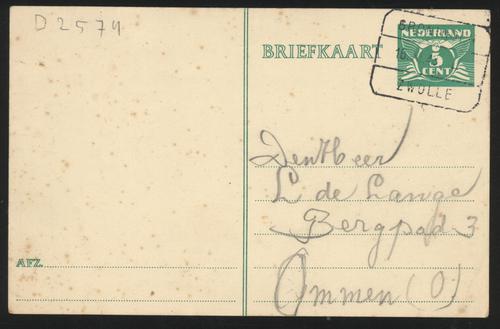 D2574
BRIEFKAART
NEDERLAND
5
CENT
ZWOLLE
Den Heer
L de Lange
Bergpad 3
Ommen (O)
AFZ.